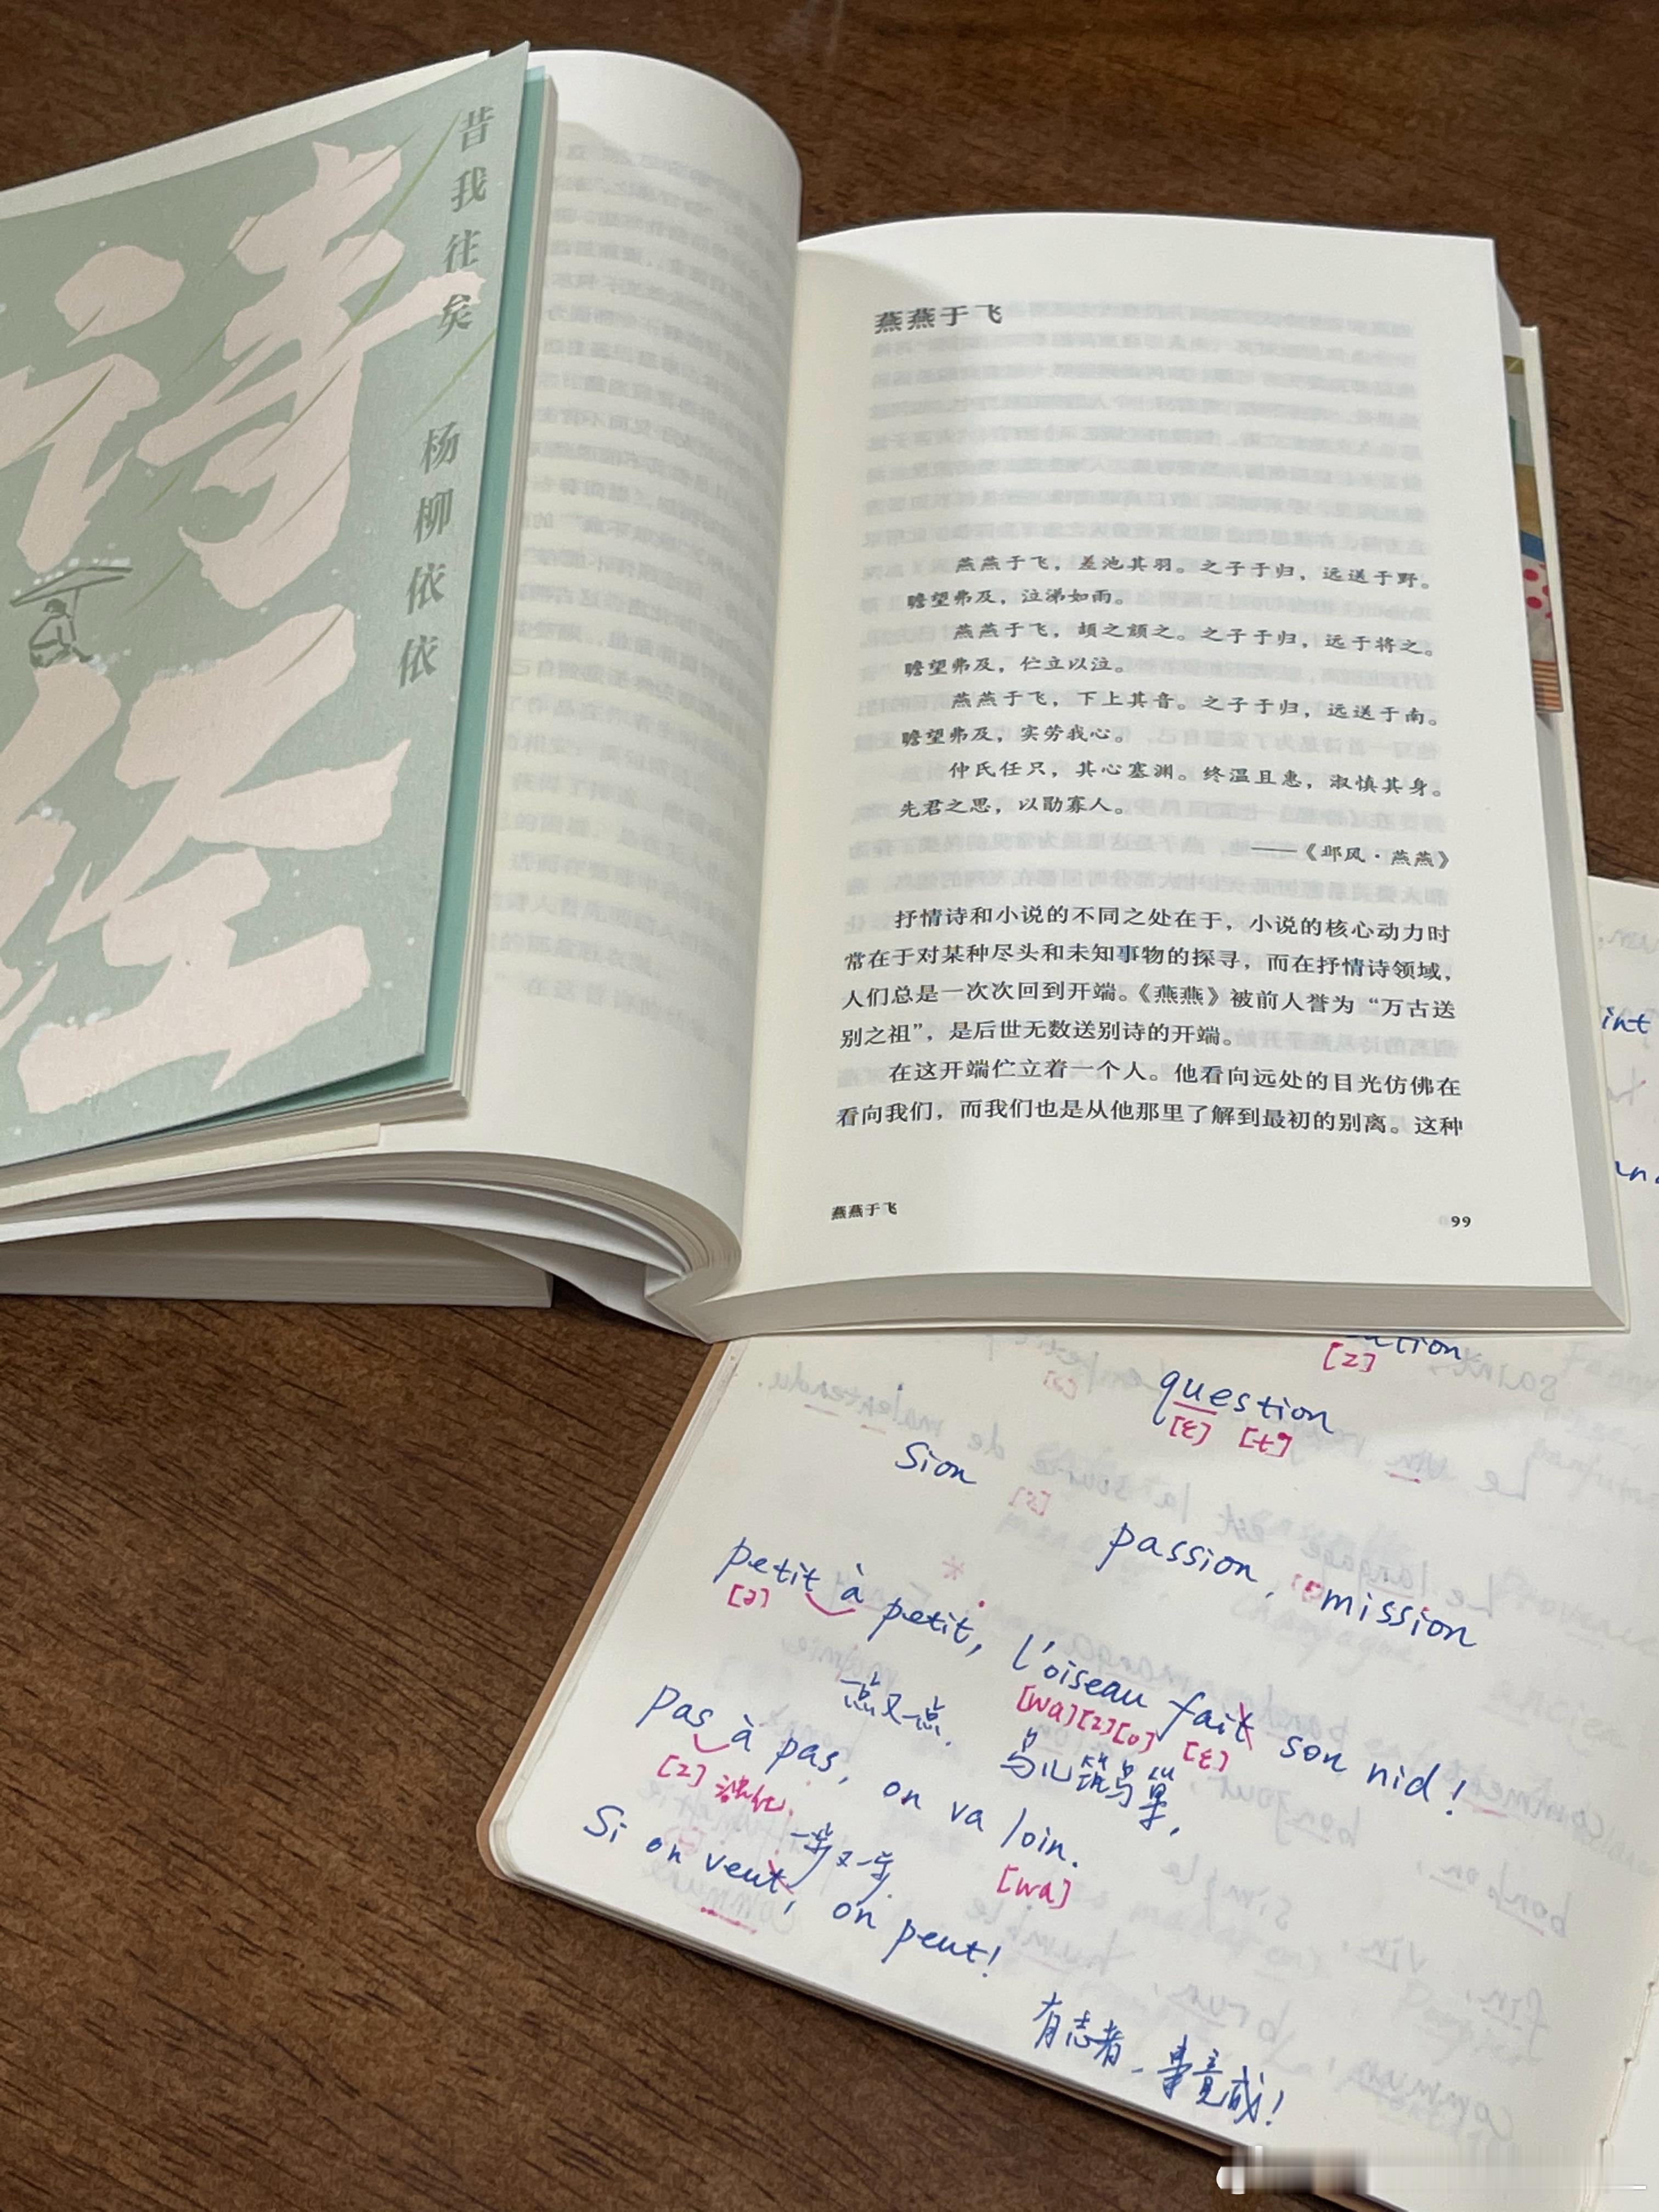 昔我往矣
杨柳依依
诗经
燕燕于飞
燕燕于飞，差池其羽。之子于归，远送于野。
瞻望弗及，泣涕如雨。
燕燕于飞，颉之颃之。之子于归，远于将之。
瞻望弗及，伫立以泣。
燕燕于飞，下上其音。之子于归，远送于南。
瞻望弗及，实劳我心。
仲氏任只，其心塞渊。终温且惠，淑慎其身。
先君之思，以勖寡人。
——《邶风·燕燕》
抒情诗和小说的不同之处在于，小说的核心动力时
常在于对某种尽头和未知事物的探寻，而在抒情诗领域，
人们总是一次次回到开端。《燕燕》被前人誉为“万古送
别之祖”，是后世无数送别诗的开端。
在这开端伫立着一个人。他看向远处的目光仿佛在
看向我们，而我们也是从他那里了解到最初的别离。这种
燕燕于飞
99
[z]
question
[ɛ] [t]
sion
passion, mission
petit à petit, l'oiseau fait son nid !
[ə] [wa][z][o] [ɛ]
一点又一点. 鸟儿筑鸟巢,
pas à pas, on va loin.
[z] [wa]
一步又一步.
Si on veut, on peut!
有志者，事竟成!